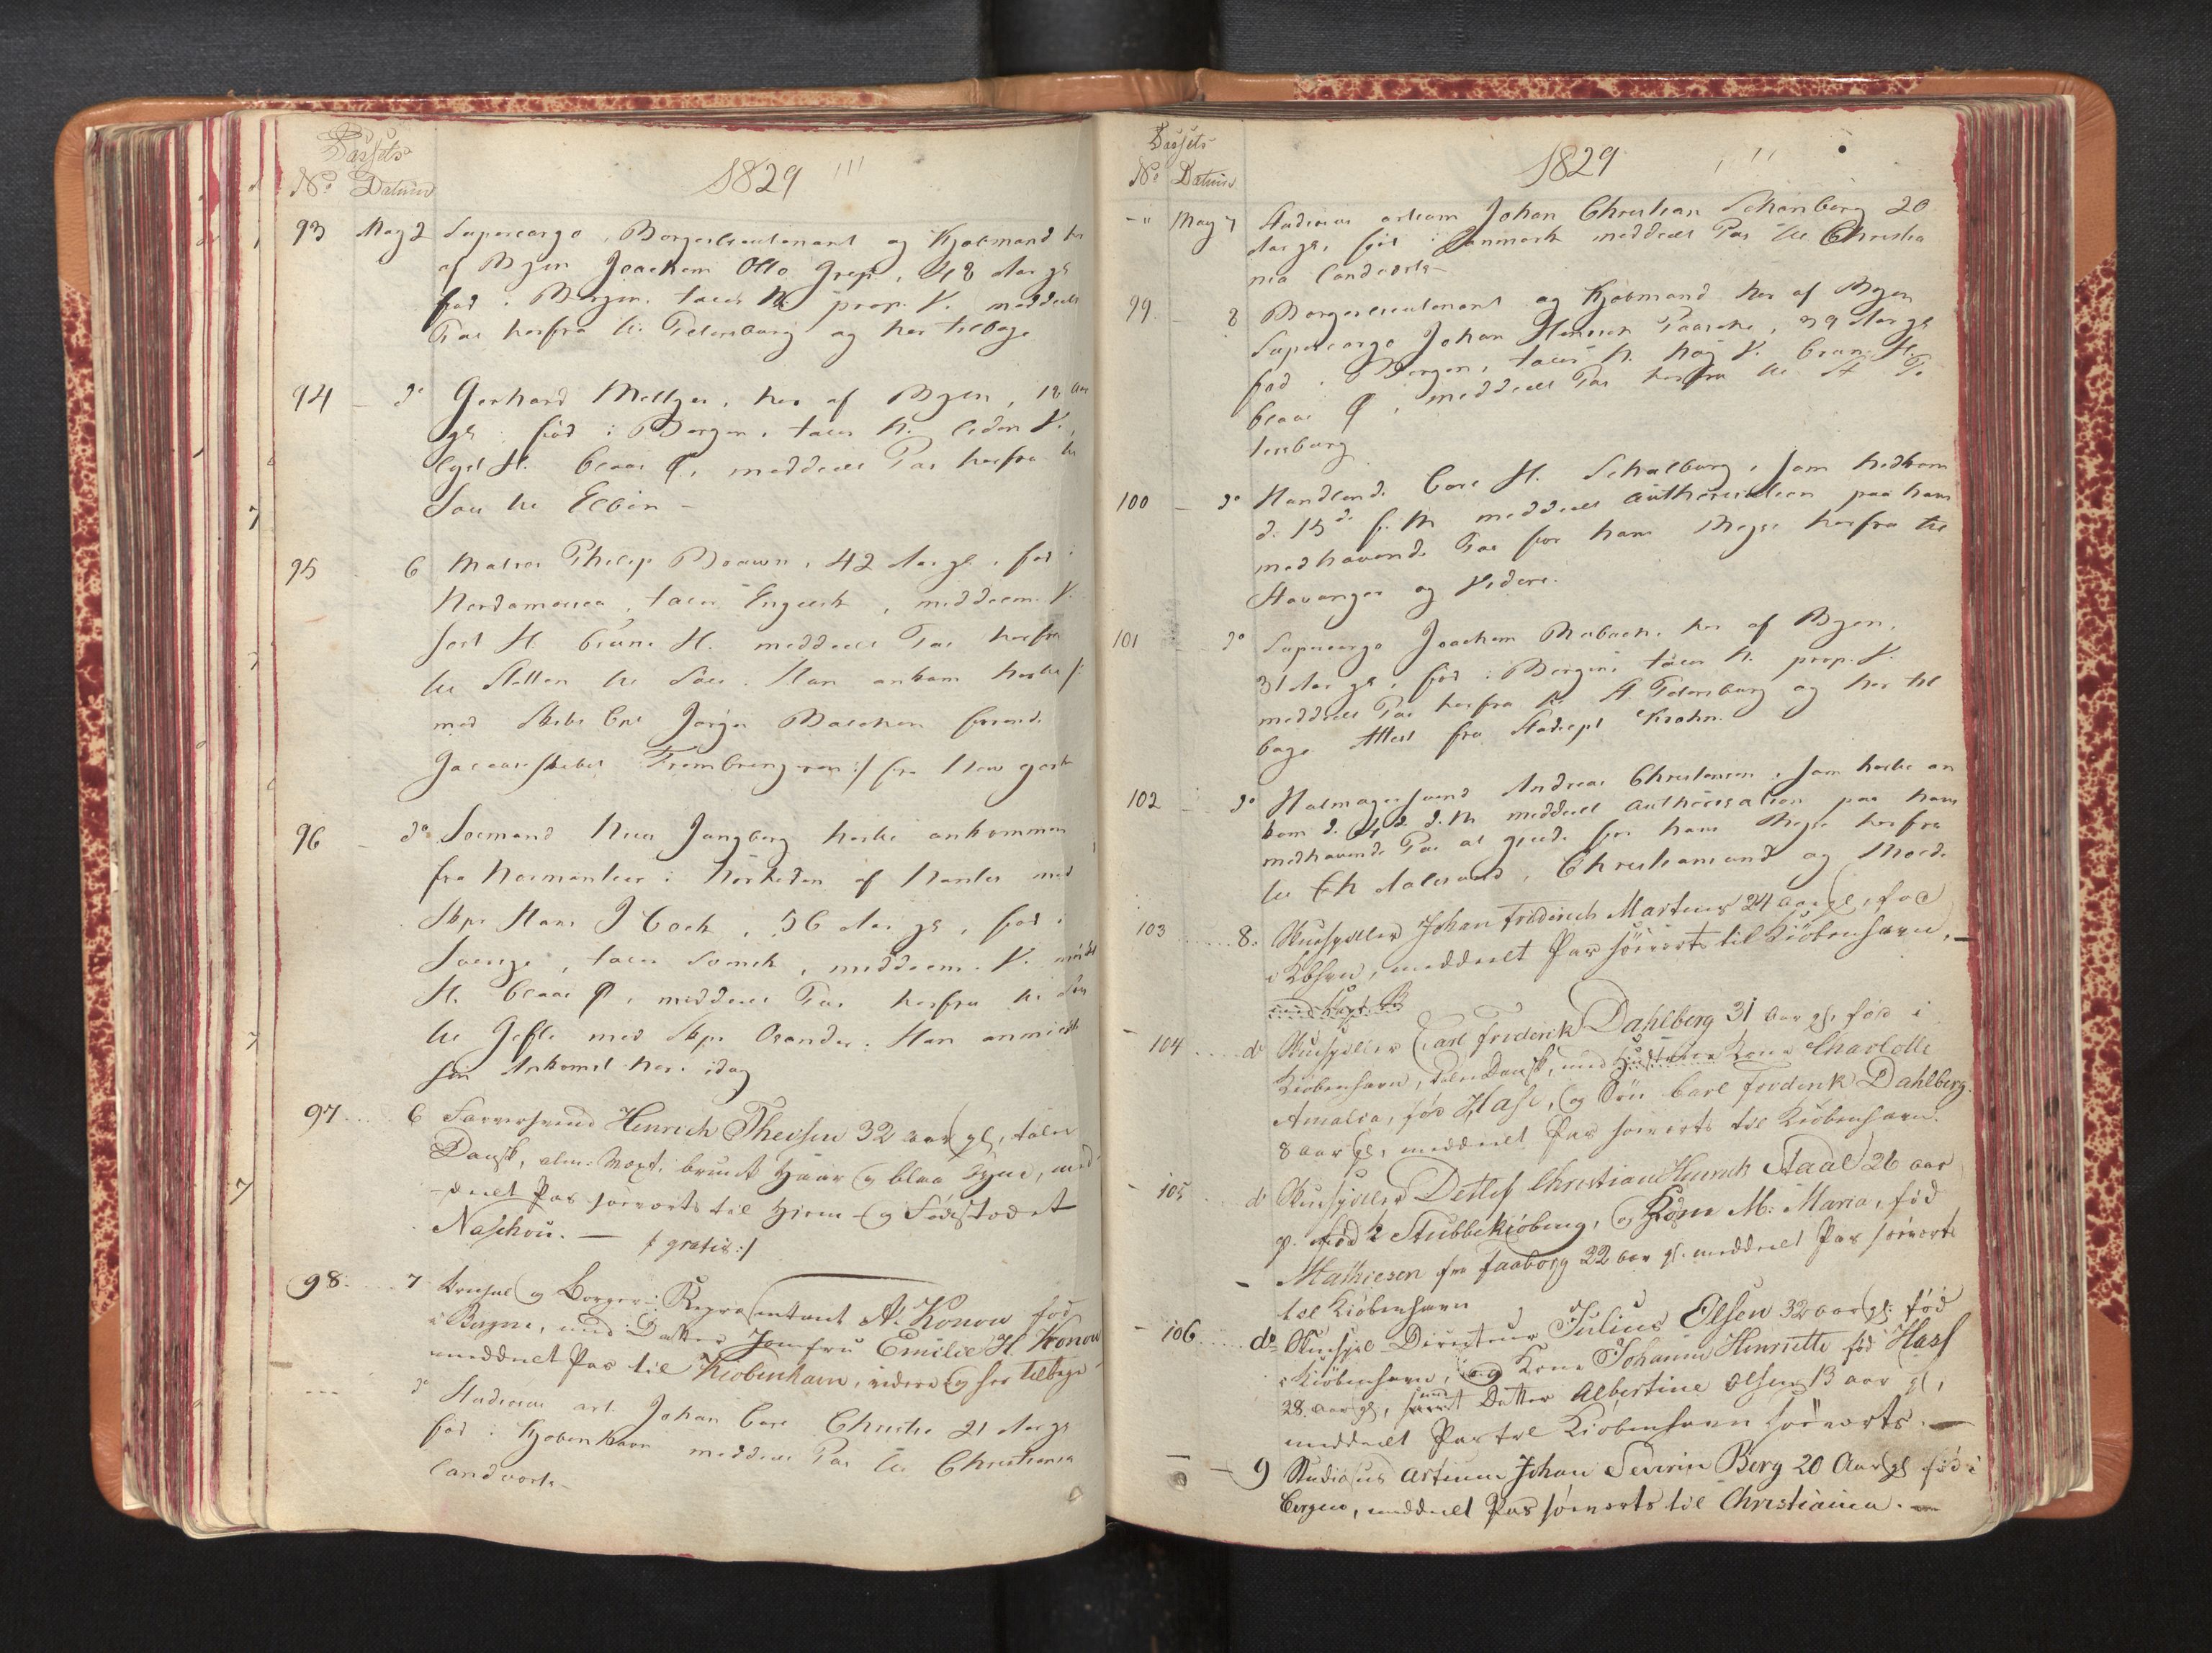 Passets
No Datum
1829
93 May 2 Supercargo, Borgerlieutenant og Kjøbmand her
af Byen Joachem Otto Grep, 48 Aar gl
fød i Bergen, taler N. prop. V. meddeelt
Pas herfra til Petersburg og her tilbage
94 - do Gerhard Meltzer, her af Byen, 18 aar
gl fød i Bergen, taler N. liden V.
lyst H. blaae Ø, meddeelt Pas herfra til
Søes til Elbin -
95 6 Matros Philip Brown, 42 Aar gl, fød i
Nordamerica, taler Engelsk, middelm. V.
sort H. brune H. meddeelt Pas herfra
til Stettin til Søes. Han ankom hertil /:
med Skibs Cpt Jørger forende
Galeasskibet :/ fra New york
96 - do Søemand Niels Jangberg hertil ankommen
fra i af med
Skpr Hans J Cock, 56 Aar gl, fød i
Sverige, taler Svensk, middelm. V. mørkt
H. blaae Ø, meddeelt Pas herfra til Søes
til Gefle med Skpr Osander. Han anmeldte
sin Ankomst her idag
97 6 Farversvend Henrich Theisen 32 aar gl, taler
Dansk, alm: Vext, bruunt Haar og blaa Øyne, med-
-deelt Pas søeverts til Hjem- og Fødestædet
Naschou. — /: gratis :/
98 7 Konsul og Borger-Repræsentant A. Konow fød
i Bergen, med Datter Jomfru Emilie H Konow
meddeelt Pas til Kiøbenhavn, videre og her tilbage
--- do Studiosus art. Johan Carl Christie 21 Aar gl
fød i Kjøbenhavn meddeelt Pas til Christiania
landverts -
Passets
No Datum
1829
-" May 7 Studiosus artium Johan Christian Schønberg 20
Aar gl, fød i Danmark meddeelt Pas til Christia
nia landverts -
99 - 8 Borgerlieutenant og Kjøbmand her af Byen
Supercargo Johan Henrich Paasche, 39 Aar gl
fød i Bergen, taler N. høy V. brun H.
blaae Ø, meddeelt Pas herfra til St Pe
tersburg
100 - do Handlende Carl H. Schalburg, som hidkom
d. 15de f. M meddeelt Authorisation paa hans
medhavende Pas for hans Reyse herfra til
Stavanger og videre.
101 - do Supercargo Joachem her af Byen,
31 Aar gl, fød i Bergen, taler N. prop. V.
meddeelt Pas herfra til St. Petersburg og her til
bage Attest fra Stadscpt Krohn.
102 - do Hatmagersvend Andreas Christensen, som hertil an
kom d. d. M meddeelt Authorisation paa hans
medhavende Pas at gielde for hans Reyse herfra
til Aalesund, Christiansund og Molde
103 8. Skuespiller Johan Friderich Martens 24 aar gl, fød
i Kbhvn, meddeelt Pas søeverts til Kiöbenhavn. —
104 do Skuespiller Carl Frederik Dahlberg 31 aar gl, fød i
Kiøbenhavn, taler Dansk, med Kone Charlotte
Amalia, fød Hass, og Søn Carl Frederik Dahlberg
8 aar gl, meddeelt Pas søeverts til Kiøbenhavn.
105 do Skuespiller Detlef Christian Henrich Staal 26 aar
g. fød i Stubbekiöbing, og Kone M: Maria, fød
Mathiesen fra Faaborg 22 aar gl. meddeelt Pas søeverts
til Kiöbenhavn
106 do Skuespil-Directeur Julius Olsen 32 aar gl. fød
i Kiöbenhavn, og Kone Johanne Henriette fød Hass
28 aar gl, samt Datter Albertine Olsen 13 aar gl,
meddeelt Pas til Kiöbenhavn søeverts. —
— 9 Studiosus artium Johan Severin Berg 20 Aar gl fød i
Bergen, meddeelt Pas søeverts til Christiania. —